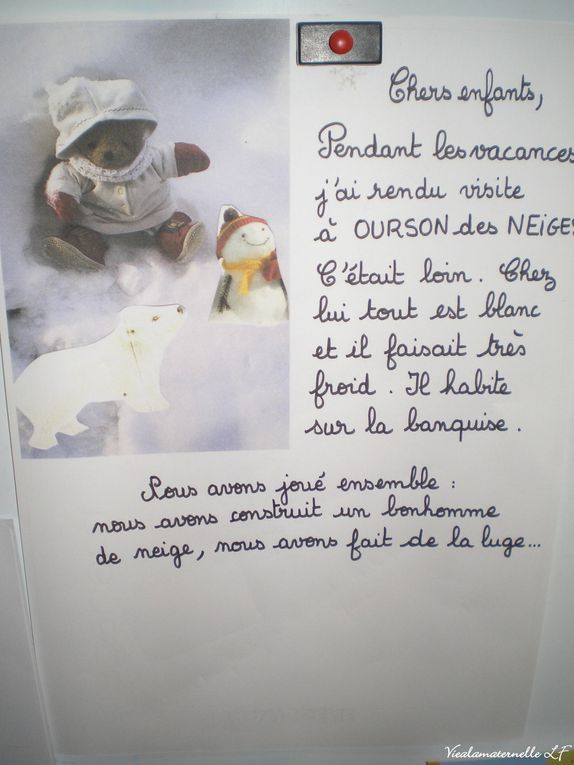 Chers enfants,
Pendant les vacances
j'ai rendu visite
à OURSON des NEIGES
C'était loin. Chez
lui tout est blanc
et il faisait très
froid. Il habite
sur la banquise.
Nous avons joué ensemble :
nous avons construit un bonhomme
de neige, nous avons fait de la luge...
Viealamaternelle LF